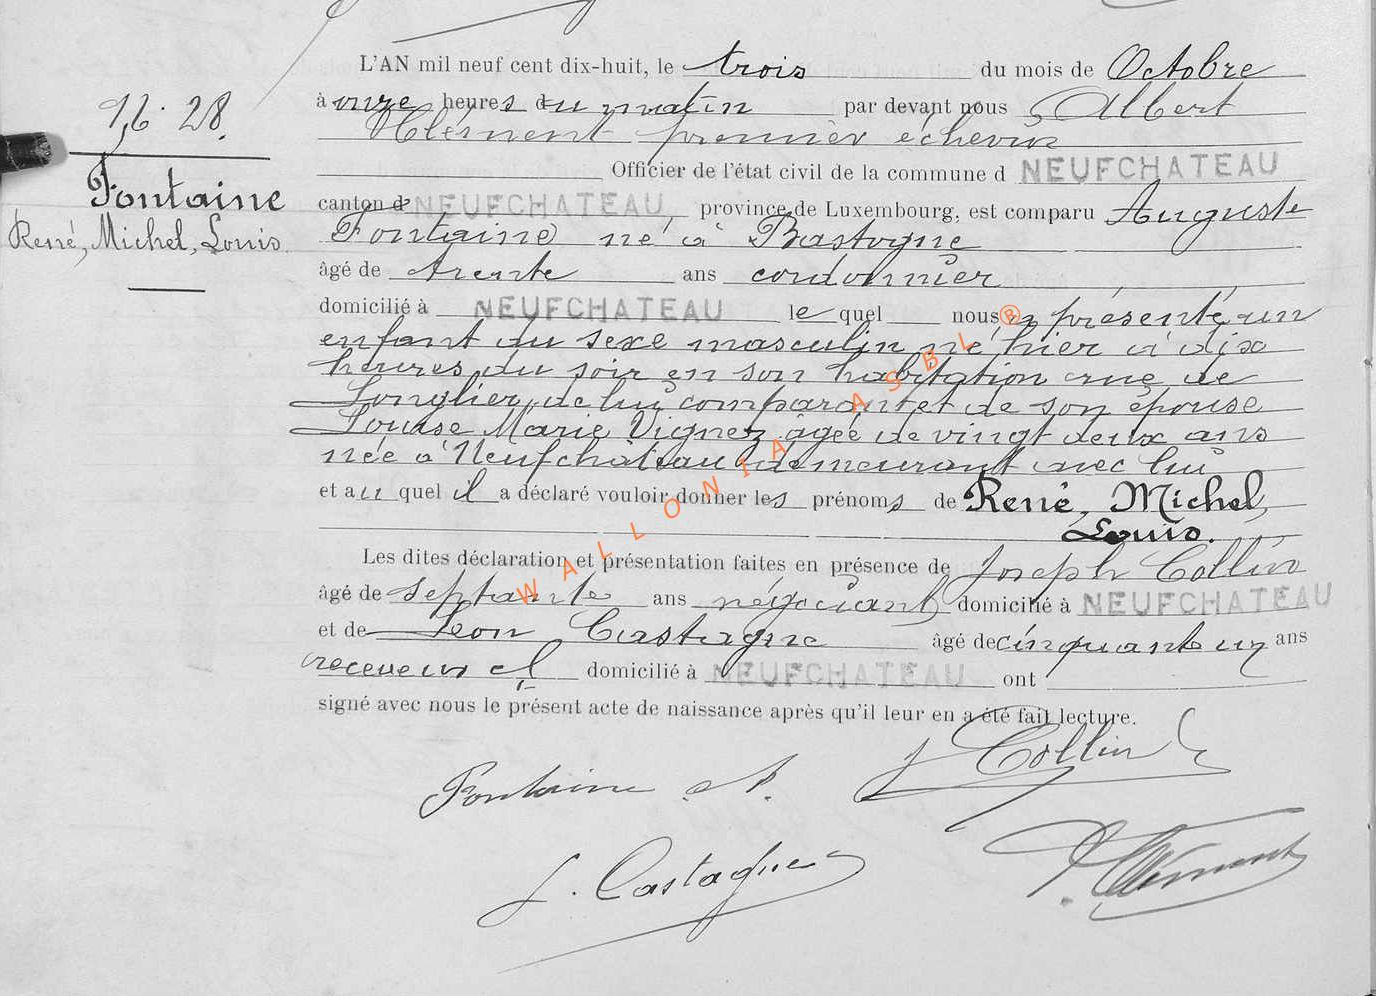 L'AN mil neuf cent dix-huit, le trois du mois de Octobre
à onze heures du matin par devant nous Albert
Clément premier échevin
Officier de l'état civil de la commune d NEUFCHATEAU
canton d NEUFCHATEAU, province de Luxembourg, est comparu Auguste
Fontaine né à Bastogne
âgé de trente ans cordonnier
domicilié à NEUFCHATEAU le quel nous a présenté un
enfant du sexe masculin né hier à dix
heures du soir en son habitation rue de
Longlier, de lui comparant et de son épouse
Louise Marie Vignez âgée de vingt deux ans
née à Neufchâteau demeurant avec lui
et au quel il a déclaré vouloir donner les prénoms de René, Michel,
Louis.
Les dites déclaration et présentation faites en présence de Joseph Collin
âgé de septante ans négociant domicilié à NEUFCHATEAU
et de Léon Castagne âgé de cinquante un ans
receveur cl domicilié à NEUFCHATEAU ont
signé avec nous le présent acte de naissance après qu'il leur en a été fait lecture.
Fontaine A.
J Collin
L. Castagne
A. Clément
28.
Fontaine
René, Michel, Louis.
WALLONIA ASBL ®